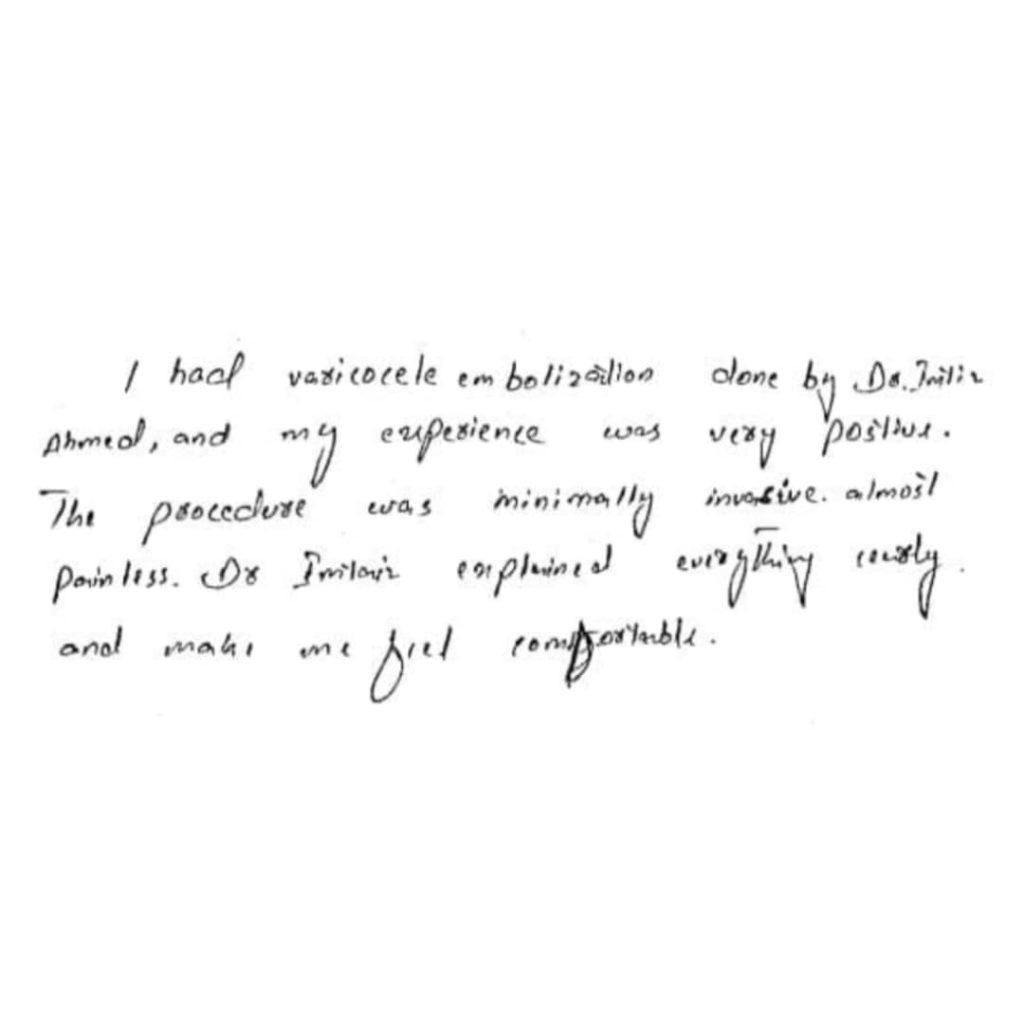 I had varicocele embolization done by Dr.
Ahmed, and my experience was very postive.
The procedure was minimally invasive. almost
painless. Dr explained everything
and make me feel comfortable.